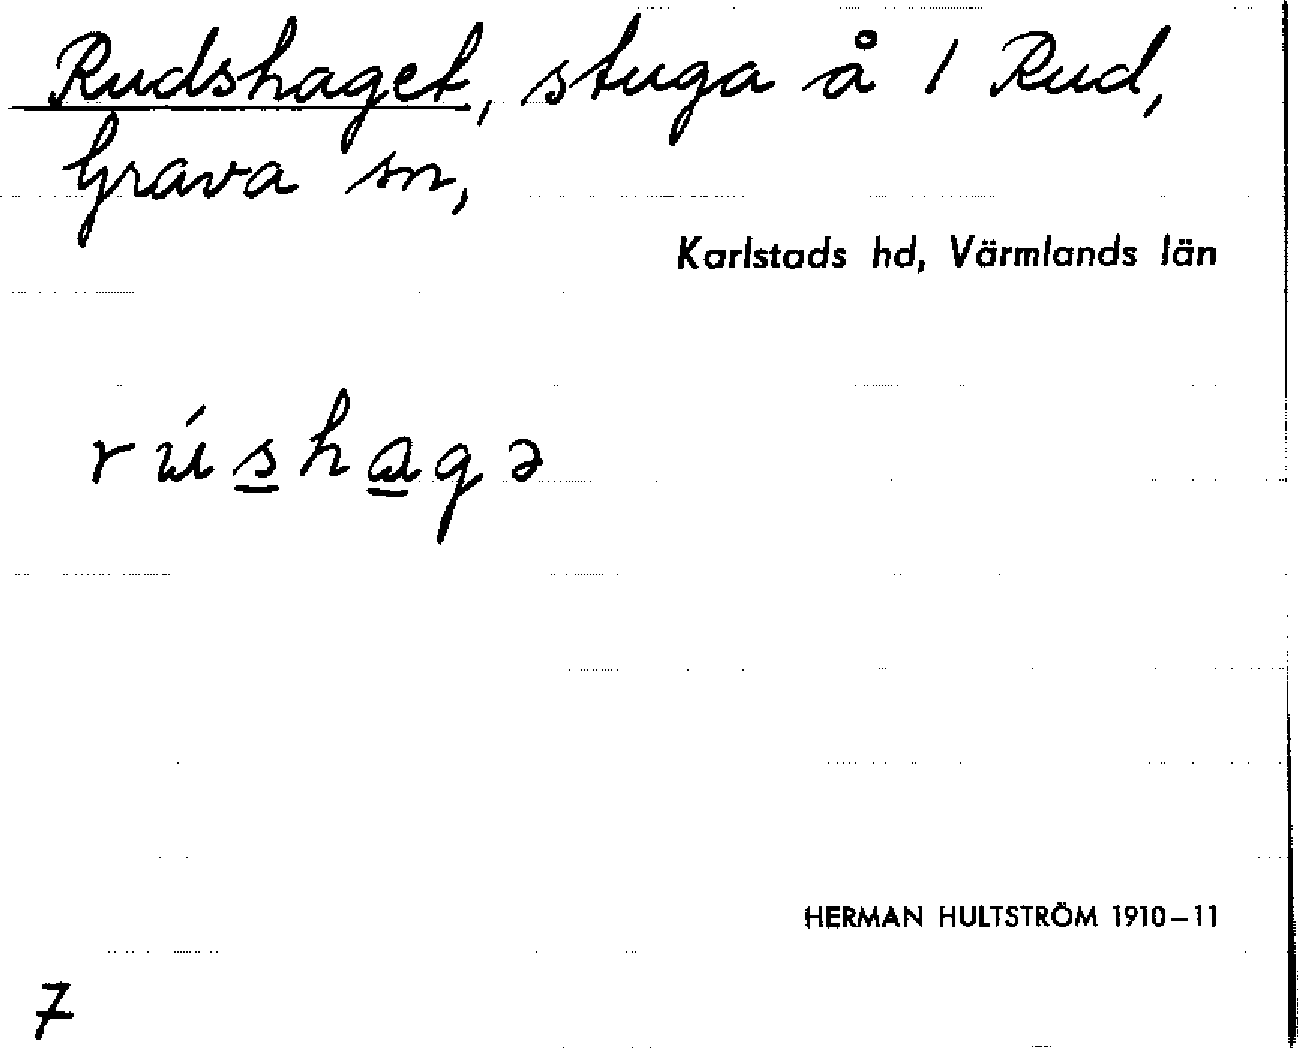 Rudshaget, stuga å 1 Rud,
Grava sn,
Karlstads hd, Värmlands län
rúshagə
HERMAN HULTSTRÖM 1910–11
7